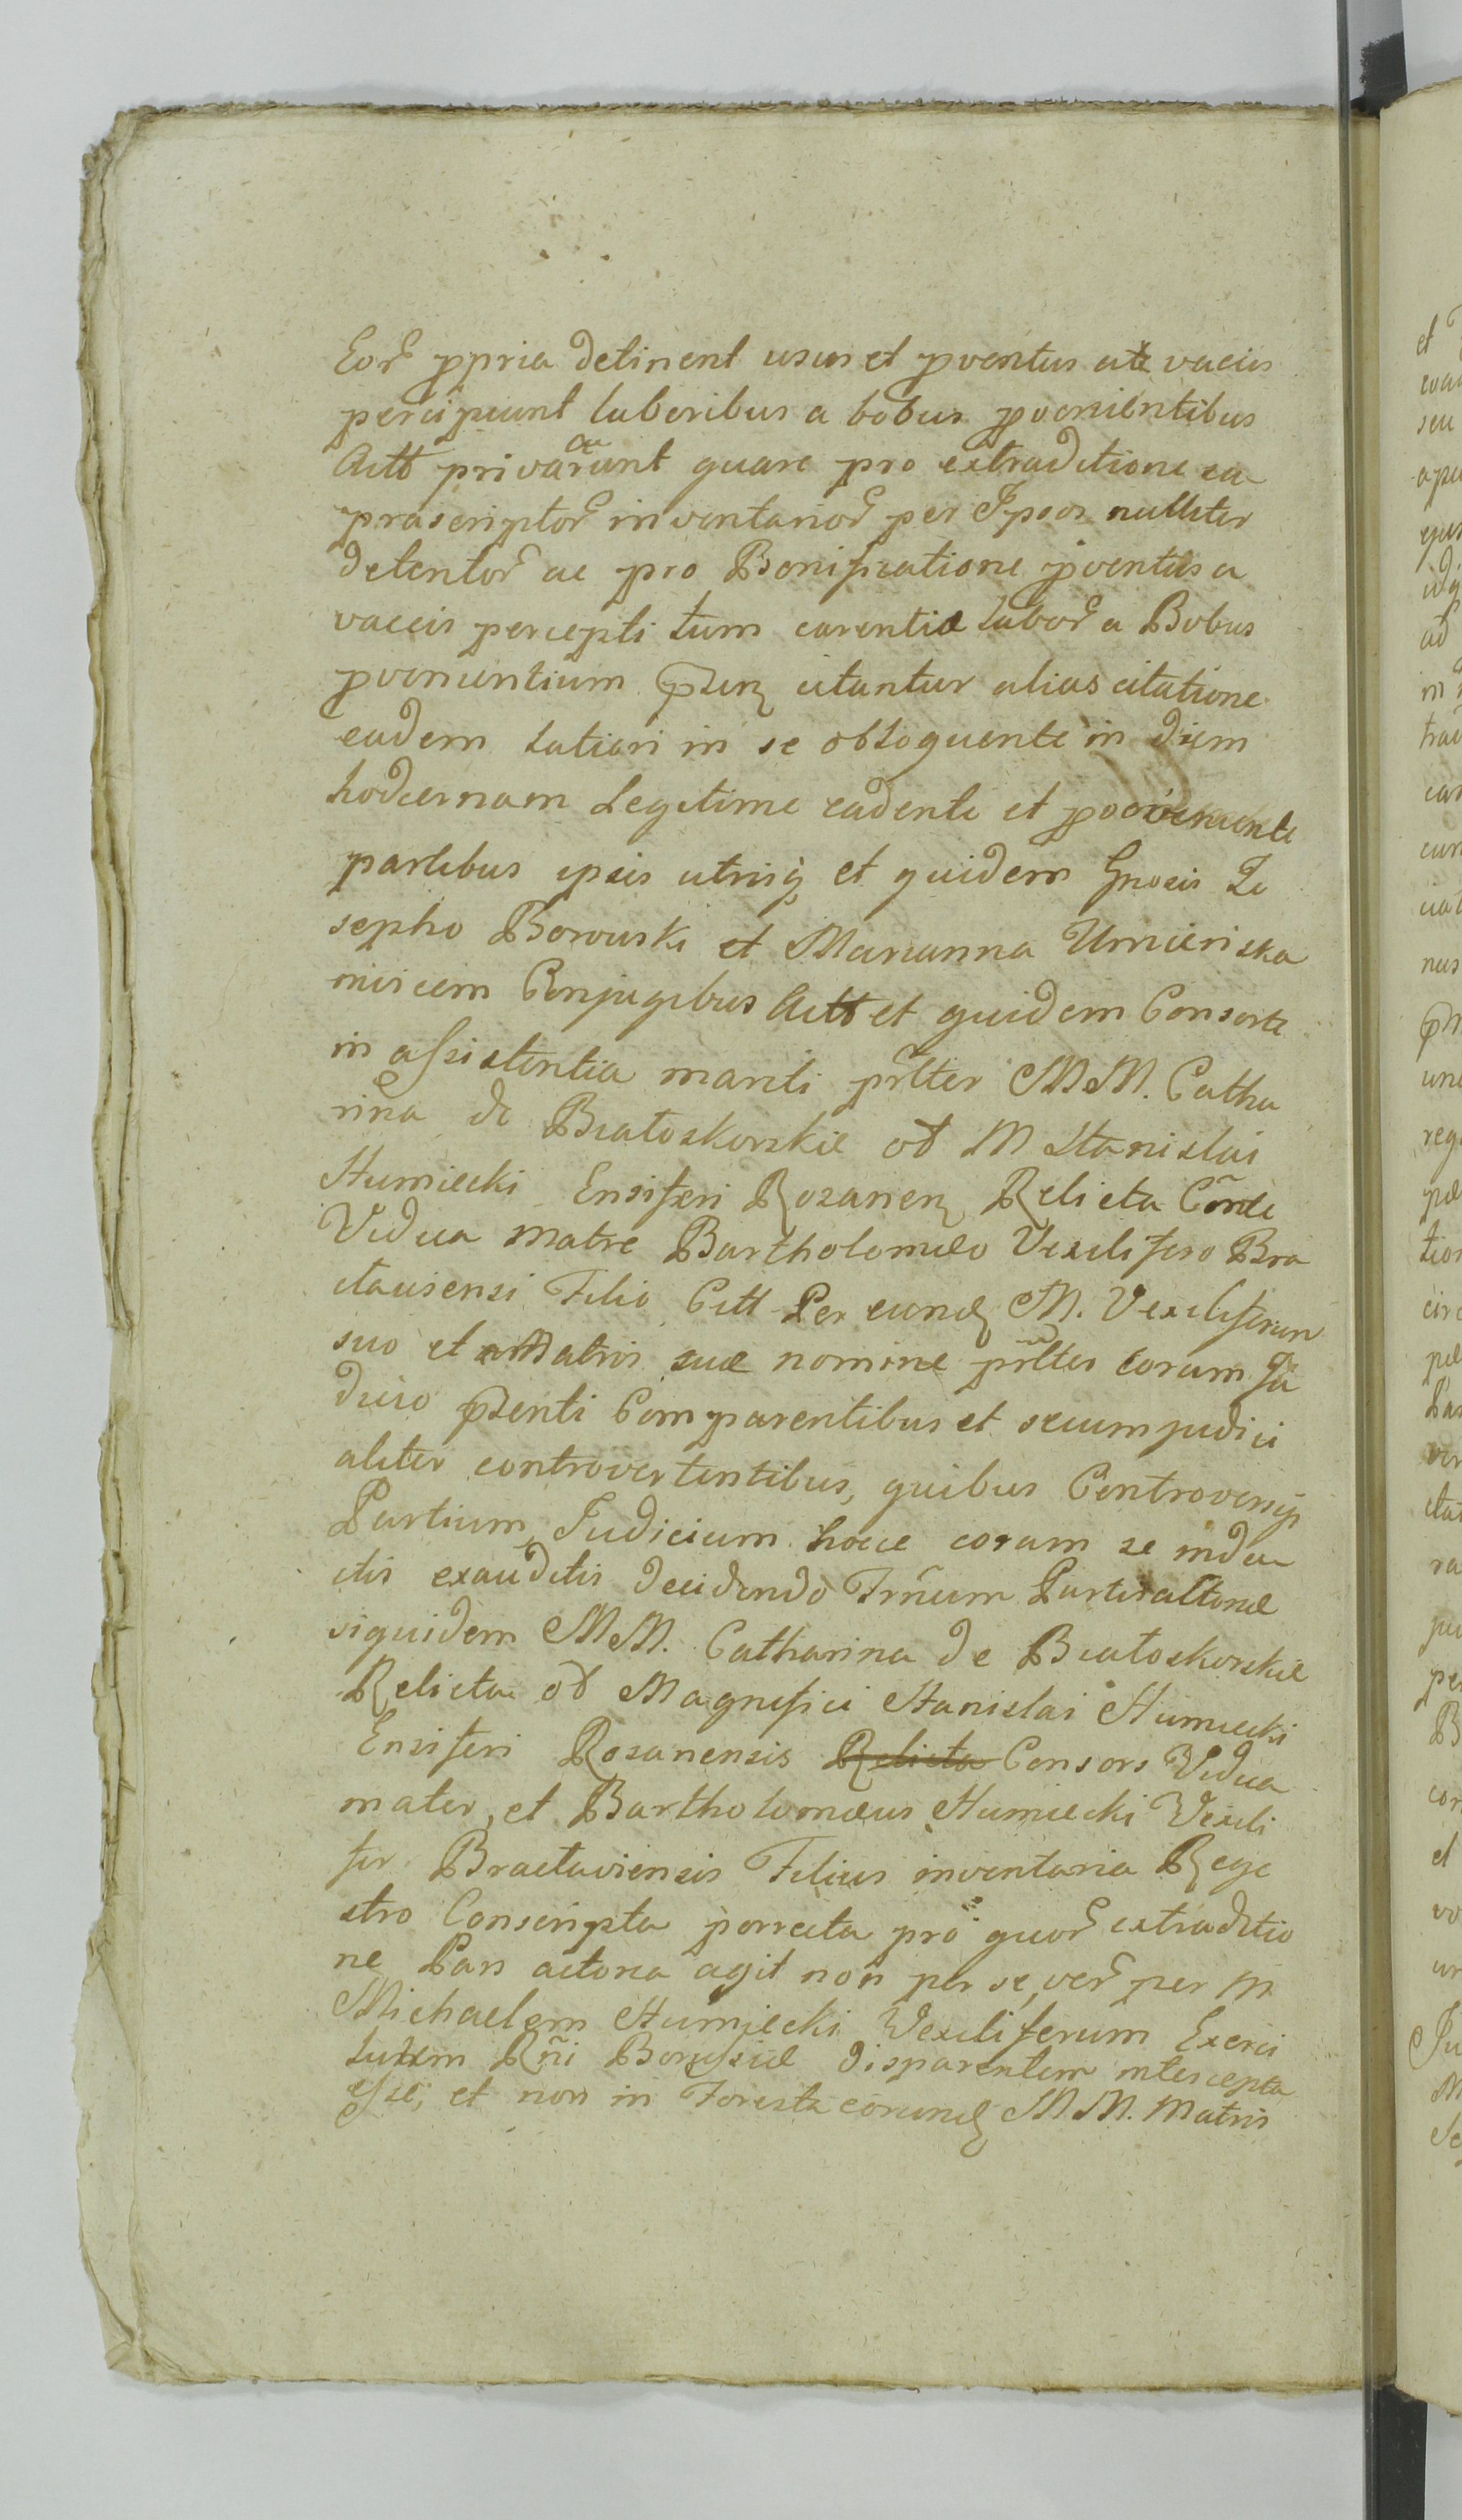 Eor ppria detinent usus et pventus ate vaccis
percipiunt laboribus a bobus pvenientibus
Actt privarunt quare pro extraditione ea
prascriptor inventarior per Ipsos nulliter
detentor ac pro Bonificatione pventus a
vaccis percepti tum carentiæ labor a Bobus
pvenientium citantur alias citatione
eadem latiori in se obloquente in diem
hodiernam Legitime cadenti et provenienti
partibus ipsis utrisq et quidem Gnosis Io
sepho Borowski et Marianna Umienska
invicem Conjugibus Actt et quidem Consorte
in assistentia mariti prlter MM. Catha
rina de Białoskorskie od M Stanislai
Humiecki Ensiferi Rozanen Relicta Conte
Vidua Matre Bartholomeo Vexilifero Bra
claviensi Filio Citt Per eund M. Vexiliferum
suo et Matris suæ nomine prlter coram Ju
dicio pzenti Comparentibus et secum judici
aliter controvertentibus, quibus Controversijs
Partium Judicium hocce coram se indu
ctis exauditis decidendo Trnum Partis actoreæ
siquidem MM. Catharina de Białoskorskie
Relicta od Magnifici Stanislai Humiecki
Ensiferi Rosanensis Relicta Consors Vidua
mater, et Bartholomæus Humiecki Vexili
fer Braclaviensis Filius inventaria Rege
stro Conscripta porrecta pro quor extraditio
ne Pars actorea agit non per se, ver per M
Michaelem Humiecki Vexiliferum Exerci
tutem Rñi Borussiæ disparentem intercepta
esse, et non in Foresta eorund MM. Matris